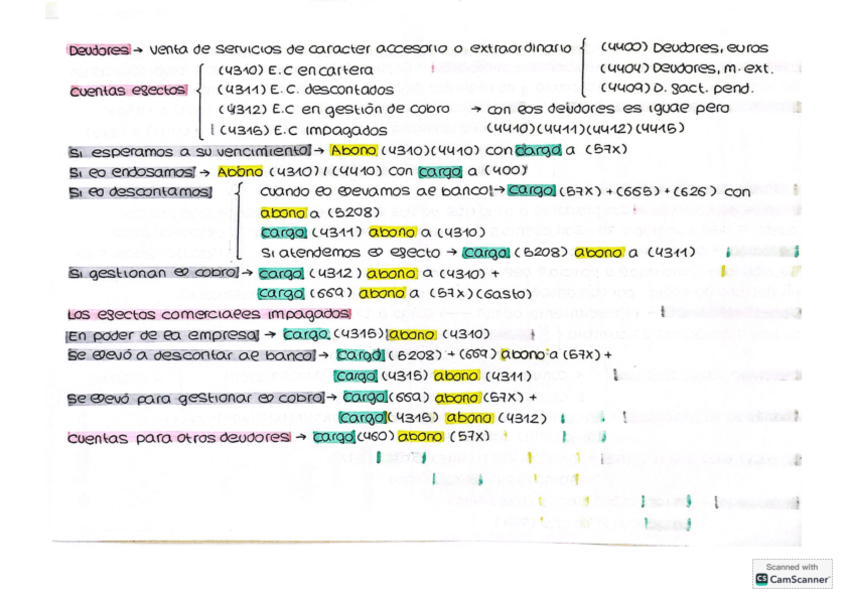 Deudores → venta de servicios de caracter accesorio o extraordinario { (4400) Deudores, euros
(4404) Deudores, m. ext.
(4409) D. fact. pend.
cuentas efectos { (4310) E.C en cartera
(4311) E.C. descontados
(4312) E.C en gestión de cobro → con los deudores es igual pero
(4315) E.C impagados (4410)(4411)(4412)(4415)
Si esperamos a su vencimiento → Abono (4310)(4410) con cargo a (57X)
Si lo endosamos → Abono (4310)/(4410) con cargo a (400)
Si lo descontamos { cuando lo llevamos al banco → cargo (57X) + (665) + (626) con
abono a (5208)
cargo (4311) abono a (4310)
Si atendemos el efecto → cargo (5208) abono a (4311)
Si gestionan el cobro → cargo (4312) abono a (4310) +
cargo (669) abono a (57x) (Gasto)
Los efectos comerciales impagados
En poder de la empresa → cargo (4315) abono (4310)
Se llevó a descontar al banco → cargo (5208) + (669) abono a (57X) +
cargo (4315) abono (4311)
Se llevó para gestionar el cobro → cargo (669) abono (57X) +
cargo (4315) abono (4312)
cuentas para otros deudores → cargo (460) abono (57X)
Scanned with
CS CamScanner